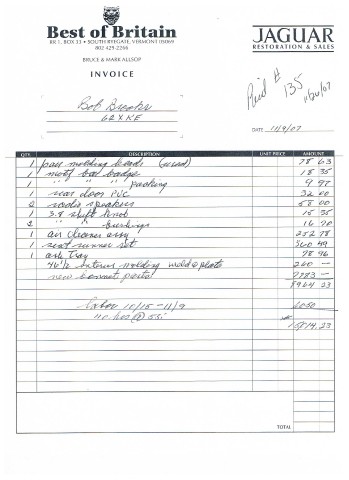 Best of Britain
RR 1, BOX 33 • SOUTH RYEGATE, VERMONT 05069
802 429-2266
BRUCE & MARK ALLSOP
INVOICE
JAGUAR
RESTORATION & SALES
Paid # 135
11/20/07
Bob
62 XKE
DATE 11/9/07
QTY. DESCRIPTION UNIT PRICE AMOUNT
1 molding (used) 78 63
1 badge 18 35
1 " " " packing 9 98
1 rear door PVC 32 00
2 radio speakers 58 00
1 3.8 shift knob 15 35
2 " " bushings 16 70
1 air cleaner assy 252 78
1 seat runner set 360 49
1 ash tray 78 96
molding 260 —
new bonnet parts —
8964 23
Labor 10/15 - 11/9 6050
110 hrs @ 55
15014.23
TOTAL